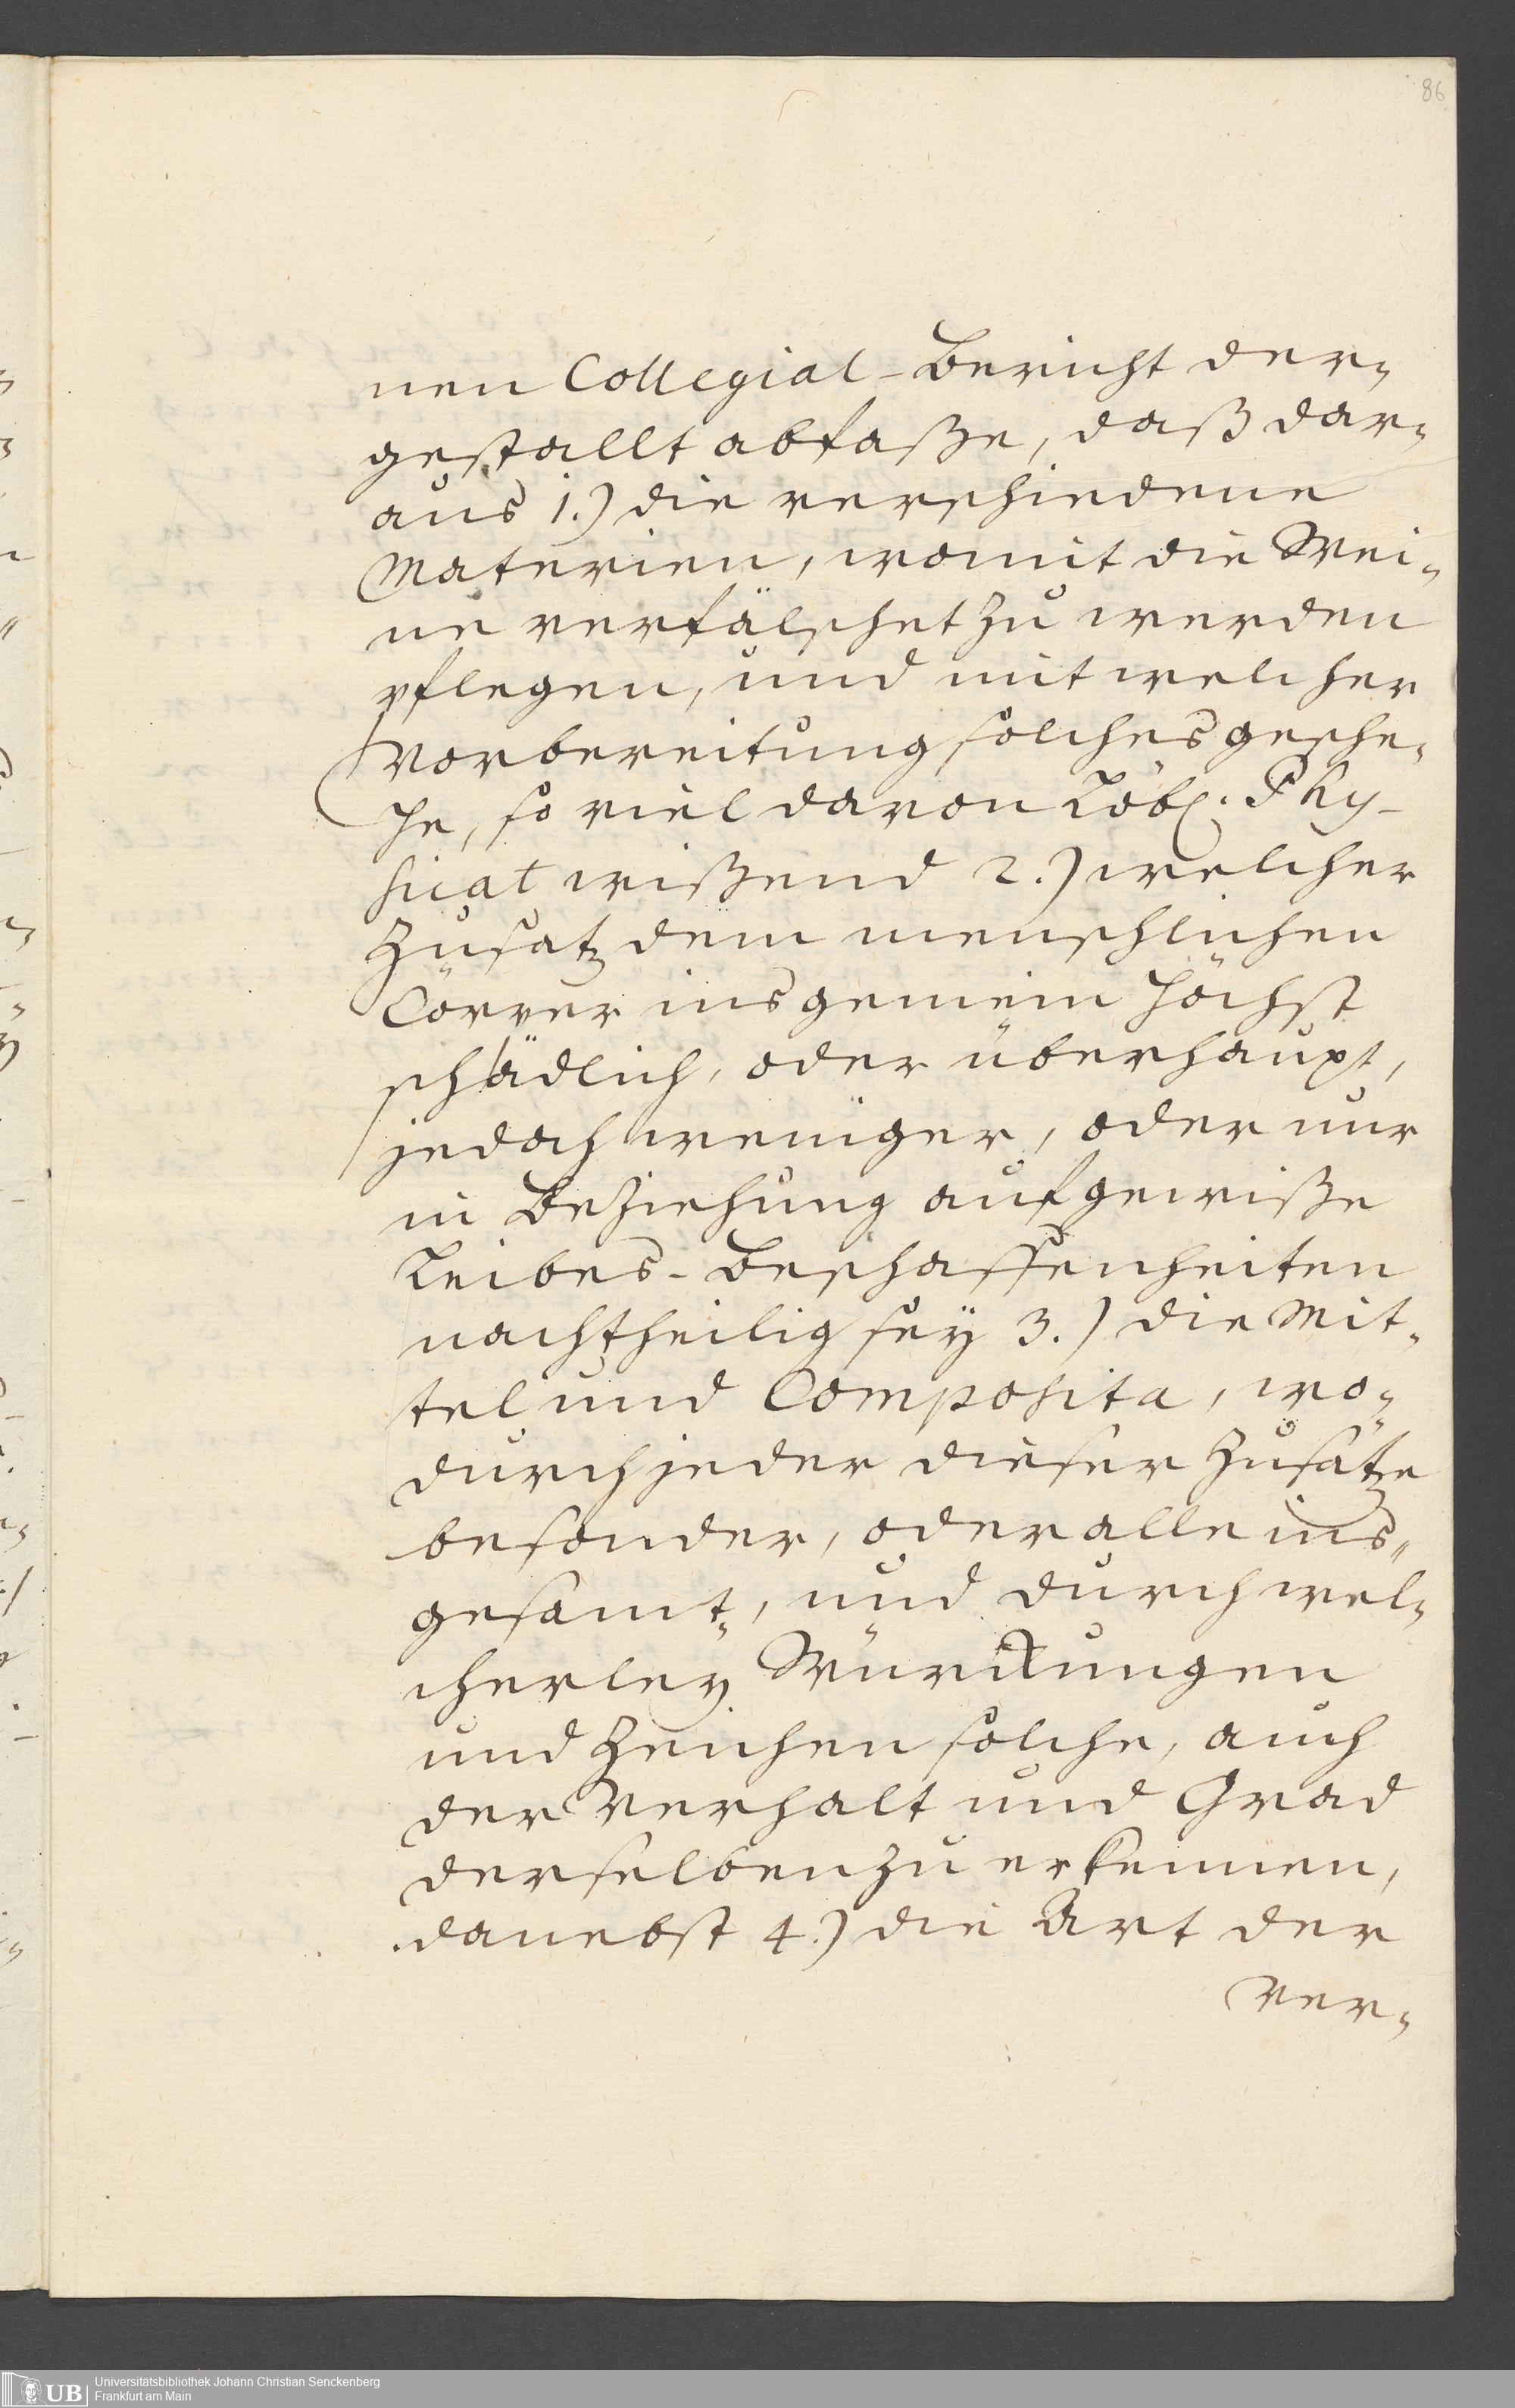 86
nen Collegial-Bericht der„
gestallt abfaße, daß dar„
aus 1.) die verschiedene
Materien, womit die Wei„
ne verfälschet zu werden
pflegen, und mit welcher
Vorbereitung solches gesche„
he, so viel davon Löbl. Phy-
sicat wißend 2.) welcher
Zusatz dem menschlichen
Cörper insgemein höchst
schädlich, oder überhaupt,
jedoch weniger, oder nur
in Beziehung auf gewiße
Leibes-Beschaffenheiten
nachtheilig seÿ 3.) die Mit„
tel und Composita, wo„
durch jeder dieser Zusätze
besonder, oder alle ins„
gesamt, und durch wel„
cherley Würckungen
und Zeichen solche, auch
der Verhalt und Grad
derselben zu erkennen,
danebst 4.) die Art der
Ver„
UB
Universitätsbibliothek Johann Christian Senckenberg
Frankfurt am Main